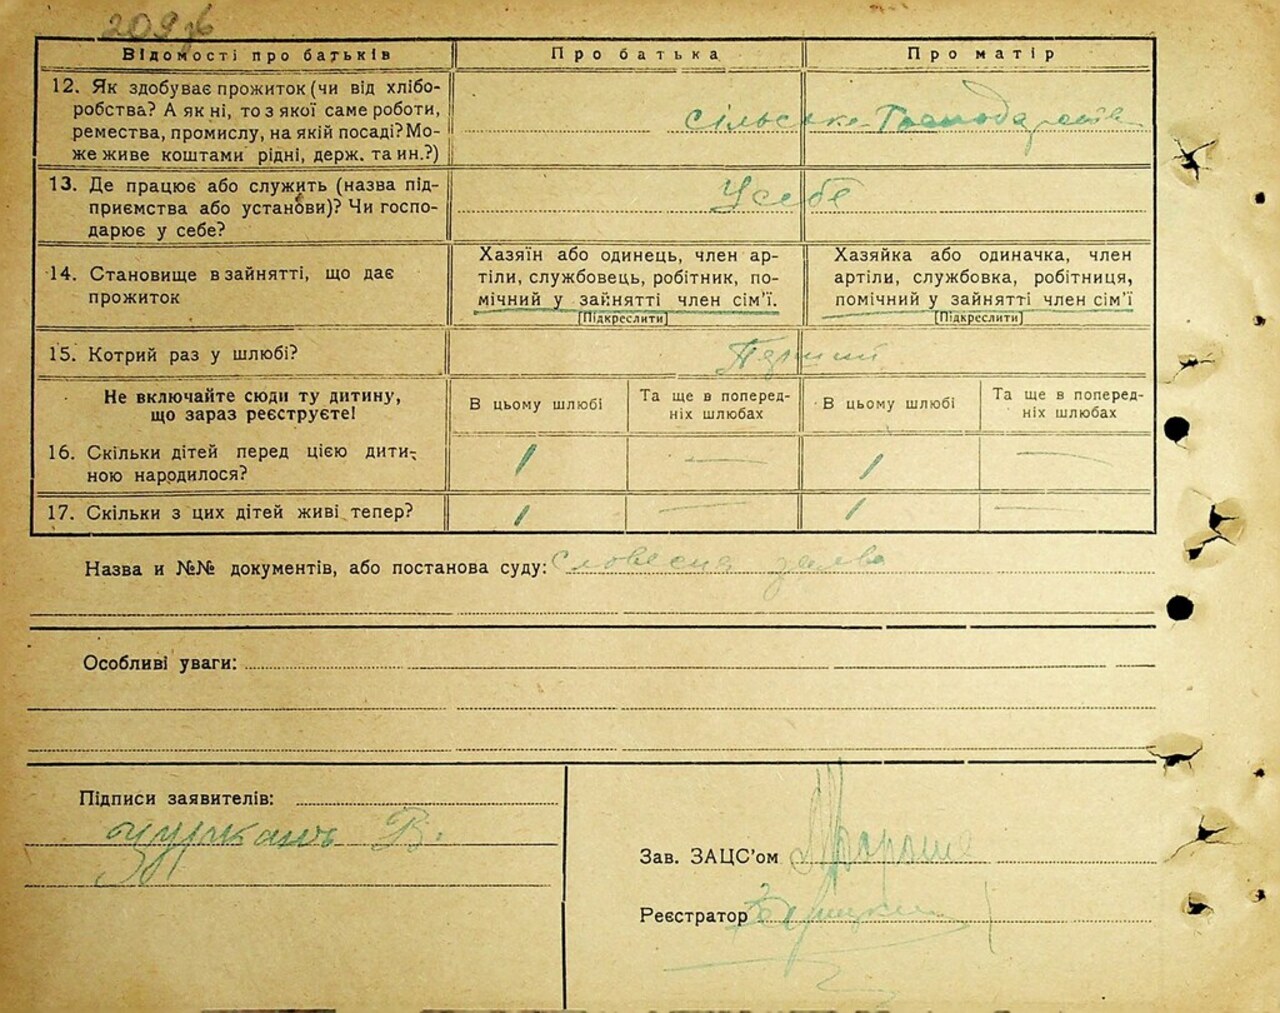 209 зв
Відомості про батьків
Про батька
Про матір
12. Як здобуває прожиток (чи від хлібо-
робства? А як ні, то з якої саме роботи,
ремества, промислу, на якій посаді? Мо-
же живе коштами рідні, держ. та ин.?)
сільське-господарство
13. Де працює або служить (назва під-
приємства або установи)? Чи госпо-
дарює у себе?
У себе
14. Становище в зайнятті, що дає
прожиток
Хазяїн або одинець, член ар-
тілі, службовець, робітник, по-
мічний у зайнятті член сім'ї.
[Підкреслити]
Хазяйка або одиначка, член
артілі, службовка, робітниця,
помічний у зайнятті член сім'ї
[Підкреслити]
15. Котрий раз у шлюбі?
Перший
Не включайте сюди ту дитину,
що зараз реєструєте!
В цьому шлюбі
Та ще в поперед-
ніх шлюбах
В цьому шлюбі
Та ще в поперед-
ніх шлюбах
16. Скільки дітей перед цією дити-
ною народилося?
1 — 1 —
17. Скільки з цих дітей живі тепер?
1 — 1 —
Назва и №№ документів, або постанова суду: Словесна заява
Особливі уваги:
Підписи заявителів:
Цуркань В.
Зав. ЗАЦС'ом
Реєстратор